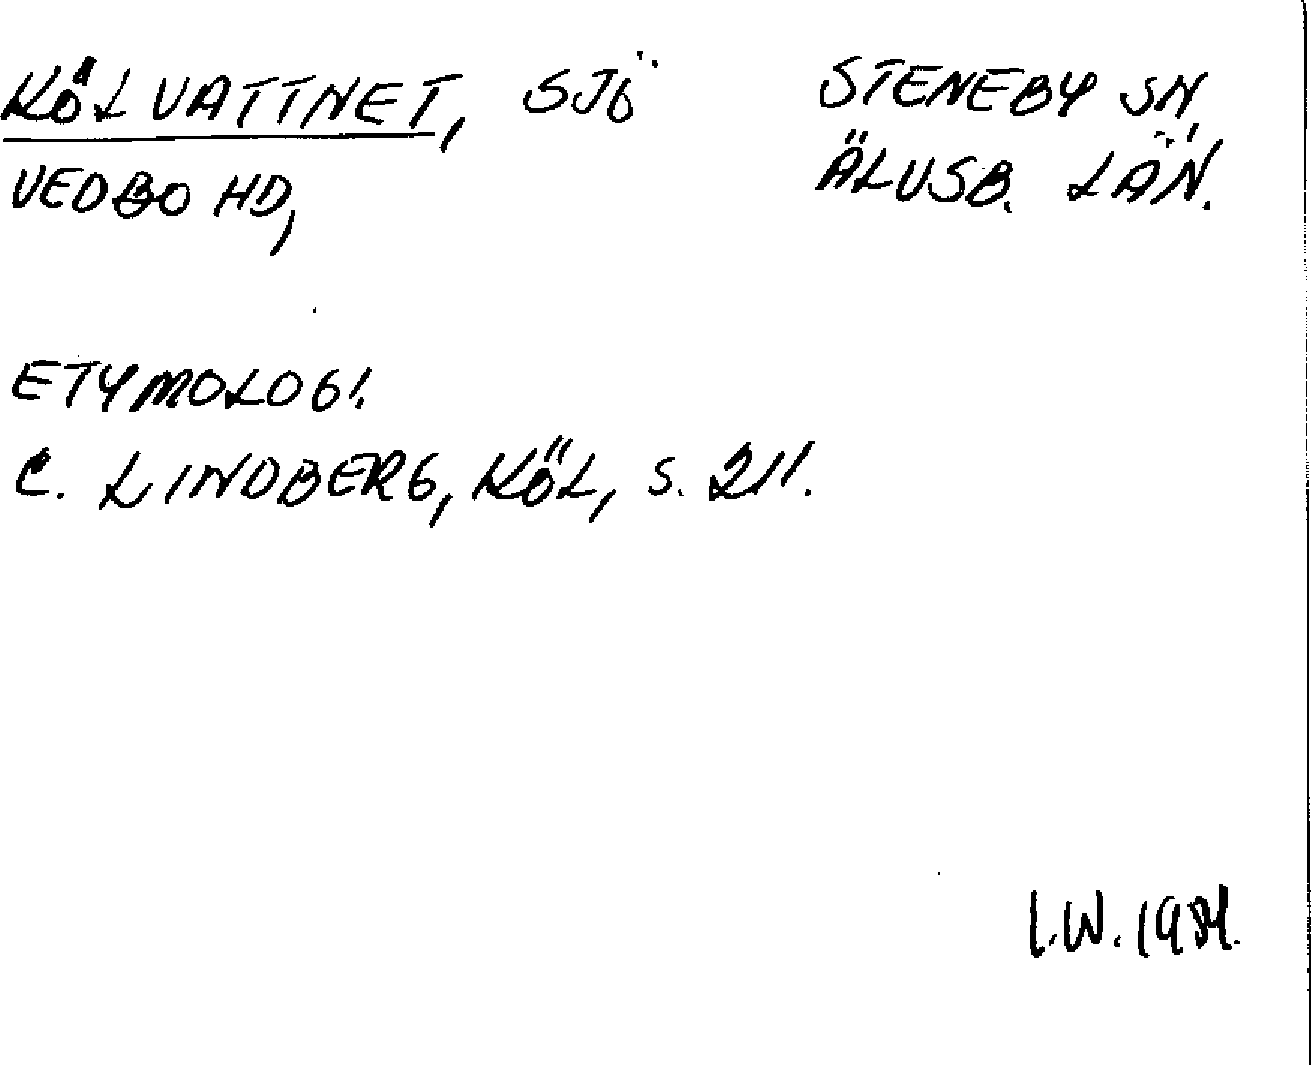 KÖLVATTNET, SJÖ STENEBY SN,
VEDBO HD, ÄLVSB. LÄN.
ETYMOLOGI.
C. LINDBERG, KÖL, S. 211.
I.W. 1984.